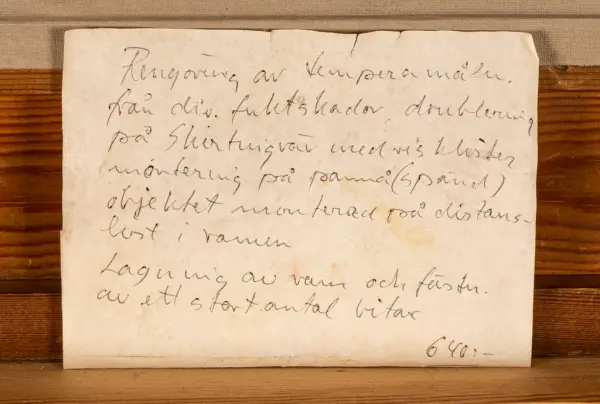 Rengöring av temperamåln.
från div. fuktskador, doublering
på Shirtingväv med risklister
montering på pannå (spänd)
objektet monterad på distans-
list i ramen
Lagning av ram och fästn.
av ett stort antal bitar
640:-